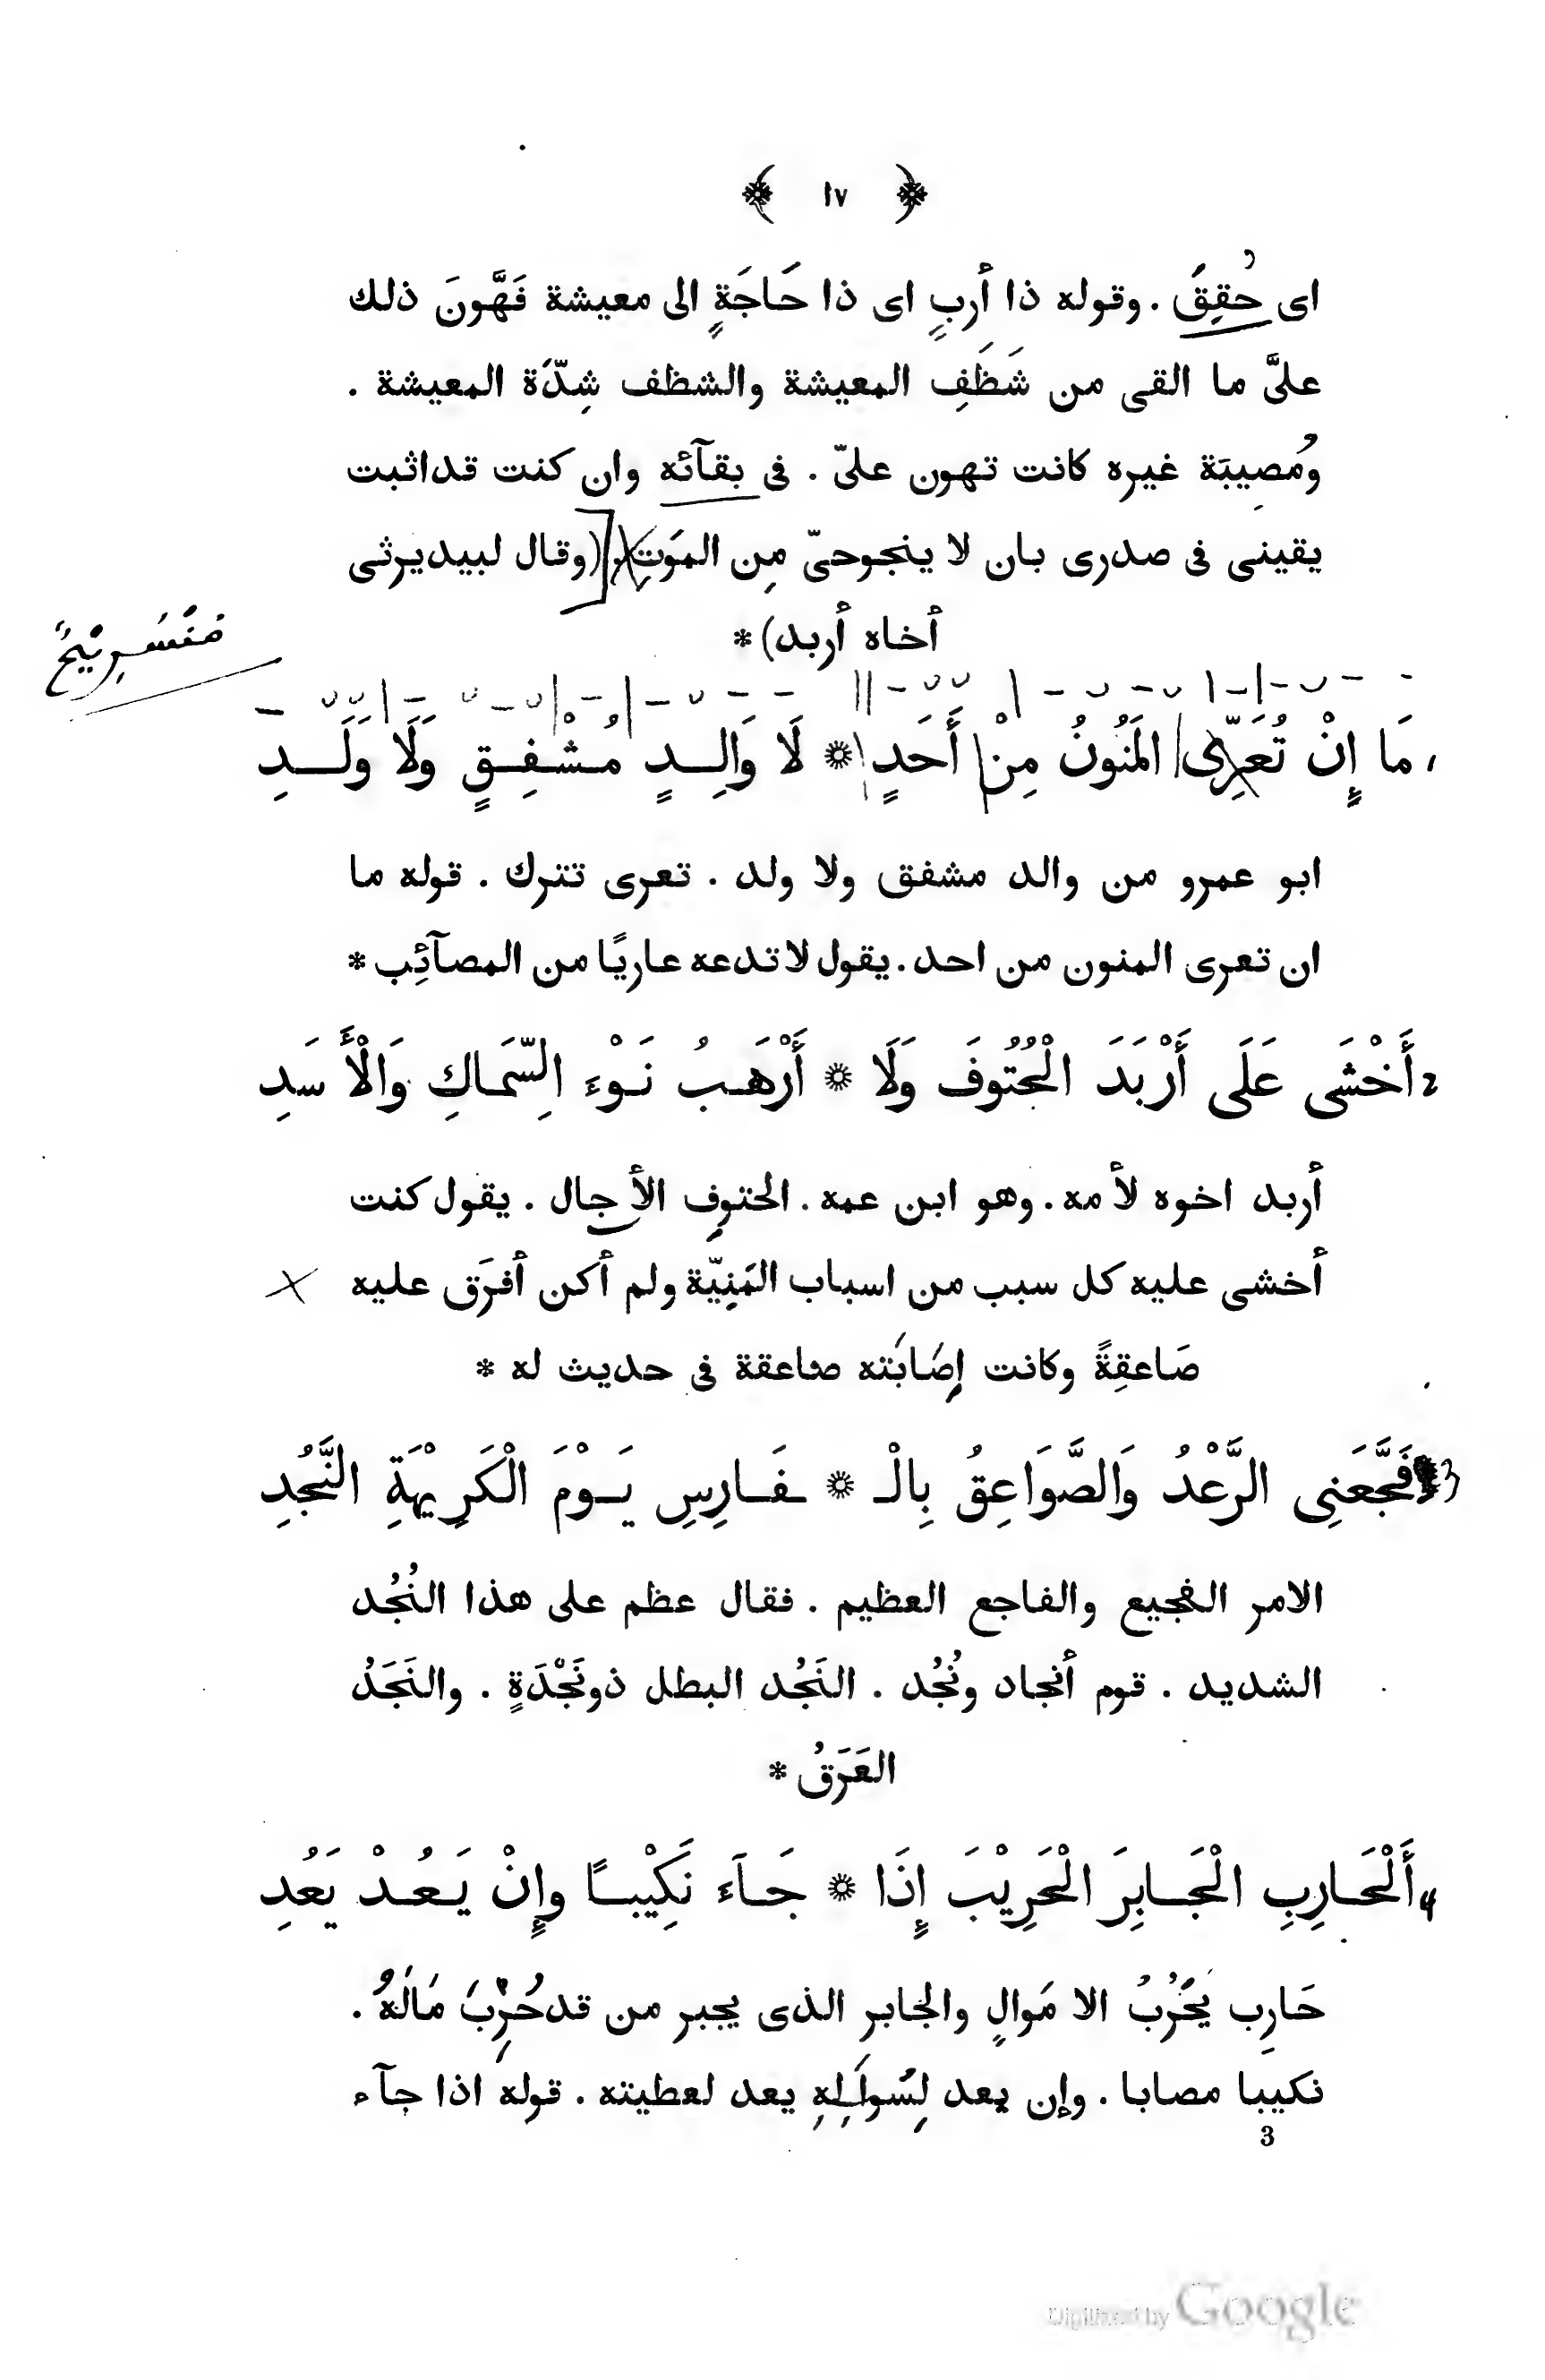 ١٧
اى حُقِقَ . وقوله ذا أَربٍ اى ذا حَاجَةٍ الى معيشة فَهَّونَ ذلك
علىَّ ما القى من شَظَفِ المعيشة والشظف شِدّة المعيشة .
ومُصِيبَة غيره كانت تهون علىّ . فى بقآئه وان كنت قداثبت
يقينى فى صدرى بان لا ينجوحىّ مِن المَوتِ . (وقال لبيديرثى
أخاه أربد) *
مُنْسَرِيحٌ
مَا إِنْ تُعَرِّى المَنُونُ مِنْ أَحَدٍ * لَا وَالِدٍ مُشْفِقٍ وَلَا وَلَدِ
ابو عمرو من والد مشفق ولا ولد . تعرى تترك . قوله ما
ان تعرى المنون من احد . يقول لاتدعه عاريًا من المصآئِب *
2 أَخْشَى عَلَى أَرْبَدَ الْحُتُوفَ وَلَا * أَرْهَبُ نَوْءَ السِّمَاكِ وَالْأَسَدِ
أربد اخوه لأمه . وهو ابن عمه . الحتوف الأجال . يقول كنت
أخشى عليه كل سبب من اسباب المَنِيّة ولم أكن أفرَق عليه
صَاعقِةً وكانت إِصَابَته صاعقة فى حديث له *
3 فَجَّعَنِى الرَّعْدُ وَالصَّوَاعِقُ بِالْـ * ـفَارِسِ يَوْمَ الْكَرِيْهَةِ النَّجُدِ
الامر الفجيع والفاجع العظيم . فقال عظم على هذا النُجُد
الشديد . قوم أنجاد ونُجُد . النَجُد البطل ذونَجْدَةٍ . والنَجَدُ
العَرَقُ *
4 أَلْحَارِبِ الْجَابِرَ الْحَرِيْبَ إِذَا * جَآءَ نَكِيْبًا وإِنْ يَعُدْ يَعُدِ
حَارِب يَحْرُبُ الا مَوالٍ والجابر الذى يجبر من قدحُرِبَ مَالَهُ .
نكيبا مصابا . وإن يعد لِسُوالِهِ يعد لعطيته . قوله اذا جآء
3
Digitized by Google